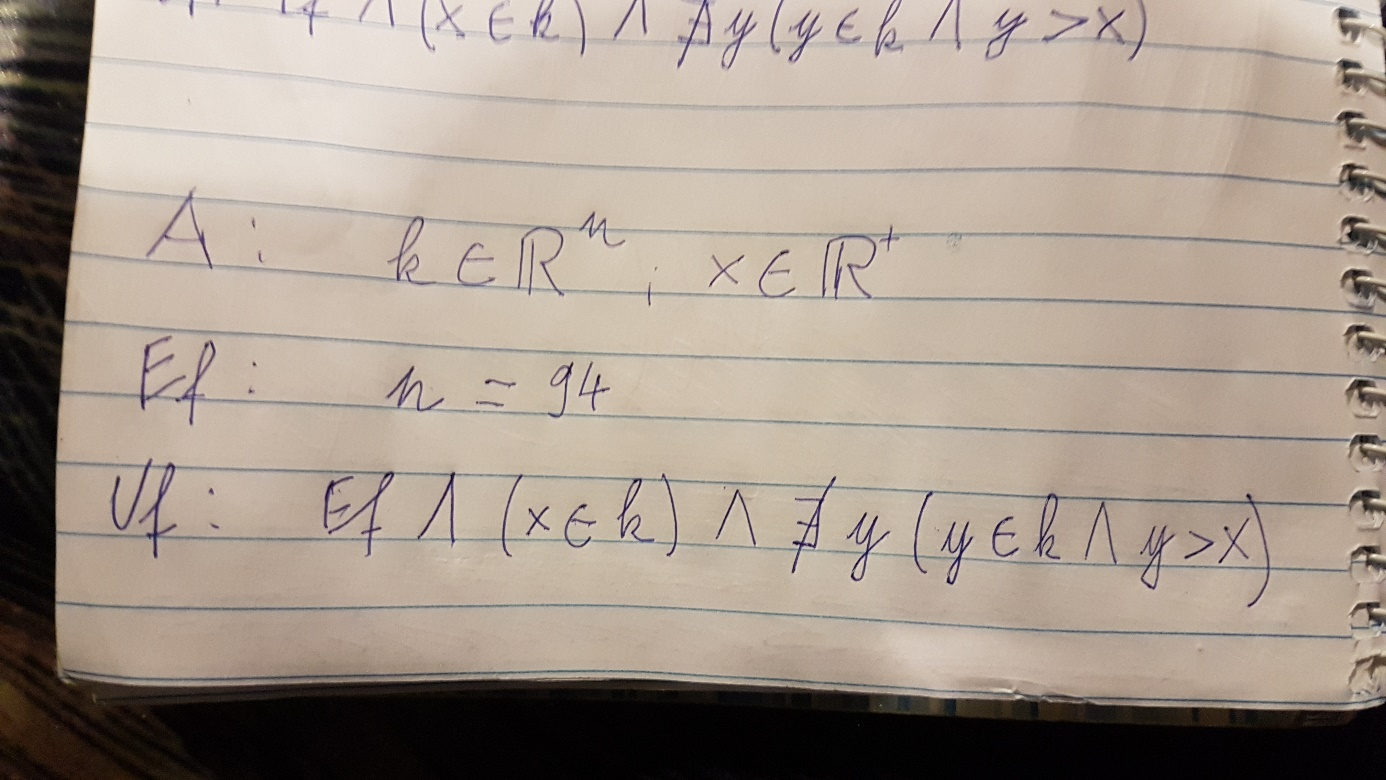 ∧ (x ∈ k) ∧ ∄y (y ∈ k ∧ y > x)
A: k ∈ ℝⁿ, x ∈ ℝ⁺
Ef: n = 94
Uf: Ef ∧ (x ∈ k) ∧ ∄y (y ∈ k ∧ y > x)